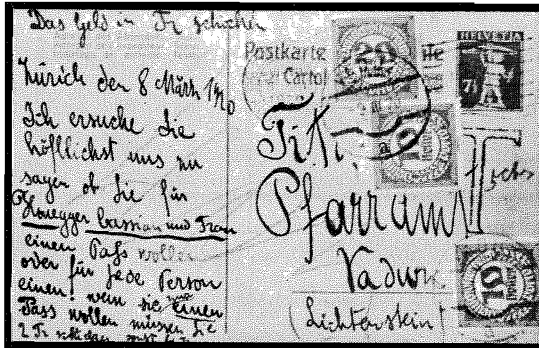 Das Geld in Fr schicken
Zürich den 8 März 1920
Ich ersuche Sie
höfflichst uns zu
sagen ob Sie für
Honegger Cassian und Frau
einen Pass wollen
oder für jede Person
einen! wen sie nur einen
Pass wollen müssen Sie
2 Fr schicken
Postkarte
Carto
HELVETIA
7½
20
10
10
T
Pfarramt
Vaduz
(Lichtenstein)